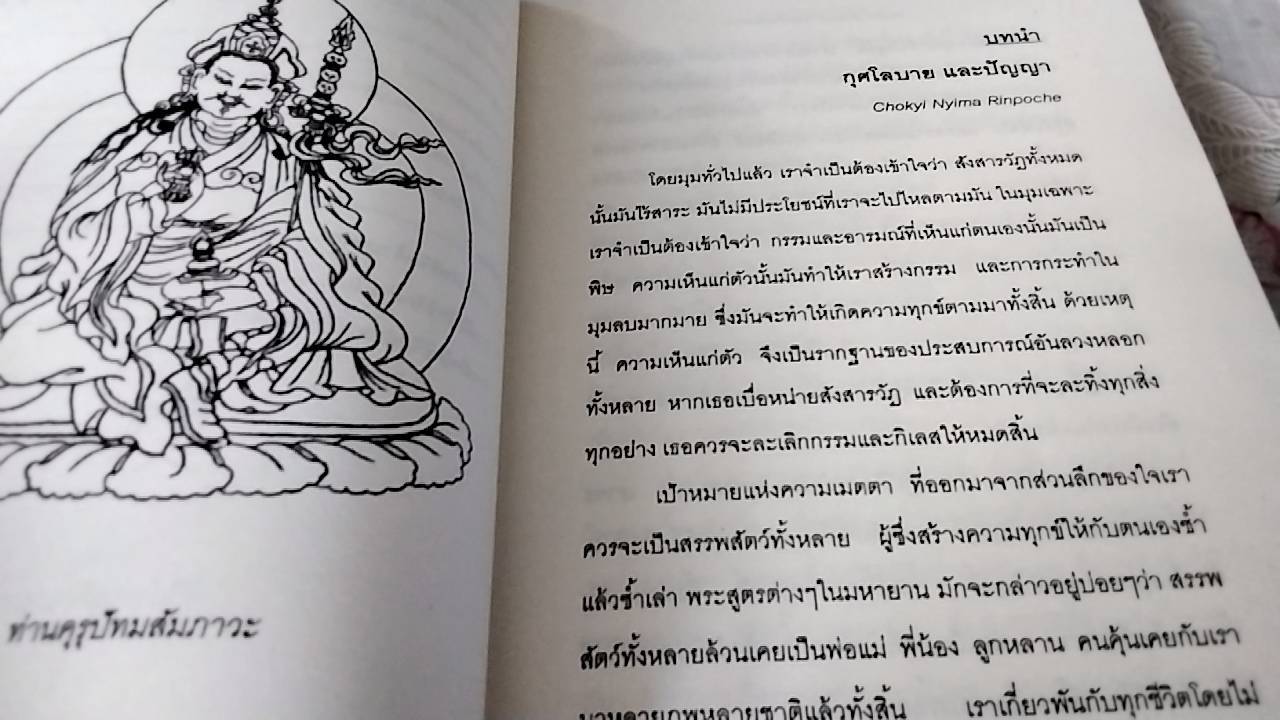 ท่านคุรุปัทมสัมภาวะ
บทนำ
กุศโลบาย และปัญญา
Chokyi Nyima Rinpoche
โดยมุมทั่วไปแล้ว เราจำเป็นต้องเข้าใจว่า สังสารวัฏทั้งหมด
นั้นมันไร้สาระ มันไม่มีประโยชน์ที่เราจะไปไหลตามมัน ในมุมเฉพาะ
เราจำเป็นต้องเข้าใจว่า กรรมและอารมณ์ที่เห็นแก่ตนเองนั้นมันเป็น
พิษ ความเห็นแก่ตัวนั้นมันทำให้เราสร้างกรรม และการกระทำใน
มุมลบมากมาย ซึ่งมันจะทำให้เกิดความทุกข์ตามมาทั้งสิ้น ด้วยเหตุ
นี้ ความเห็นแก่ตัว จึงเป็นรากฐานของประสบการณ์อันลวงหลอก
ทั้งหลาย หากเธอเบื่อหน่ายสังสารวัฏ และต้องการที่จะละทิ้งทุกสิ่ง
ทุกอย่าง เธอควรจะละเลิกกรรมและกิเลสให้หมดสิ้น
เป้าหมายแห่งความเมตตา ที่ออกมาจากส่วนลึกของใจเรา
ควรจะเป็นสรรพสัตว์ทั้งหลาย ผู้ซึ่งสร้างความทุกข์ให้กับตนเองซ้ำ
แล้วซ้ำเล่า พระสูตรต่างๆในมหายาน มักจะกล่าวอยู่บ่อยๆว่า สรรพ
สัตว์ทั้งหลายล้วนเคยเป็นพ่อแม่ พี่น้อง ลูกหลาน คนคุ้นเคยกับเรา
มาหลายภพหลายชาติแล้วทั้งสิ้น เราเกี่ยวพันกับทุกชีวิตโดยไม่